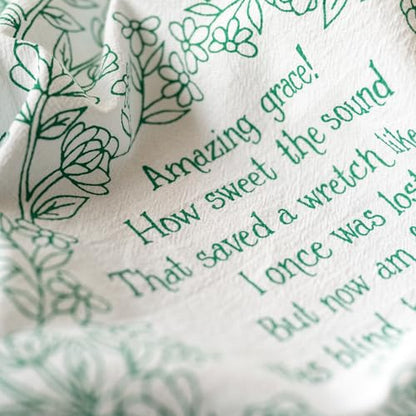 Amazing grace!
How sweet the sound
That saved a wretch like
I once was lost
But now am
blind,